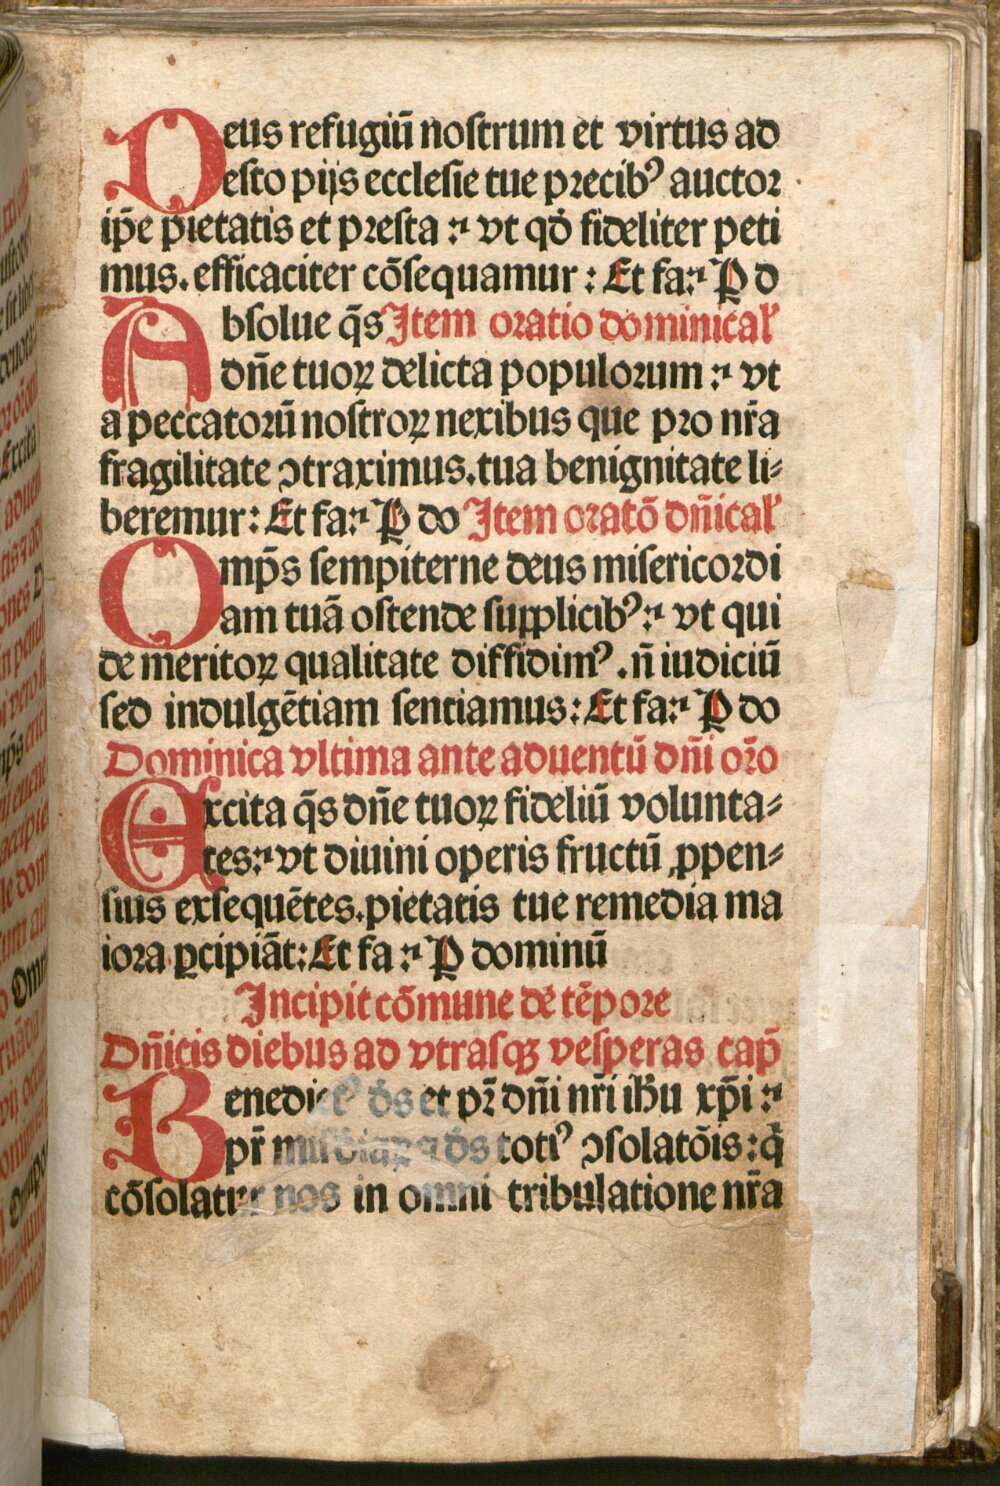 Deus refugiū nostrum et virtus ad
esto pijs ecclesie tue precibꝰ auctor
ip̄e pietatis et presta : vt qd̓ fideliter peti
mus. efficaciter cōsequamur : Et fa: P do
Absolue q̄s Item oratio dominical᷎
dn̄e tuoꝝ delicta populorum : vt
a peccatorū nostroꝝ nexibus que pro nr̄a
fragilitate ↄtraximus. tua benignitate li⸗
beremur: Et fa: P do Item oratō dn̄ical᷎
Omp̄s sempiterne deus misericordi
am tuā ostende supplicibꝰ: vt qui
de meritoꝝ qualitate diffidimꝰ. n̄ iudiciū
sed indulgētiam sentiamus: Et fa: P do
Dominica vltima ante aduentū dn̄i or̄o
Excita q̄s dn̄e tuoꝝ fideliū volunta⸗
tes: vt diuini operis fructū ꝓpen⸗
sius exsequētes. pietatis tue remedia ma
iora ꝑcipiāt: Et fa: P dominū
Incipit cōmune de tēpore
Dn̄icis diebus ad vtrasqꝫ vesperas cap̄
Benedictꝰ ds̄ et pr̄ dn̄i nr̄i ihū xp̄i :
pr̄ mīsdiaꝝ ⁊ ds̄ totiꝰ ↄsolatōis: q̇
cōsolatur nos in omni tribulatione nr̄a